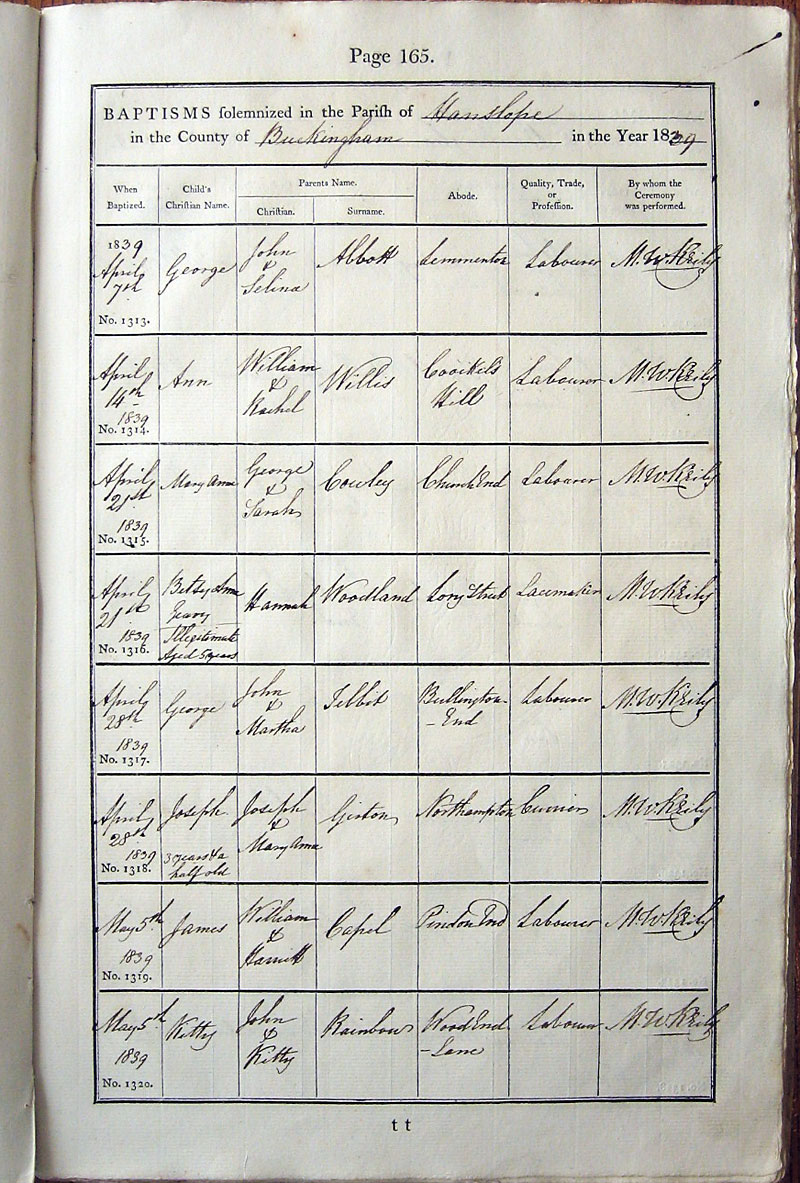 Page 165.
BAPTISMS solemnized in the Parish of Hanslope
in the County of Buckingham in the Year 1839
When Baptized. Child's Christian Name. Parents Name. Abode. Quality, Trade, or Profession. By whom the Ceremony was performed.
Christian. Surname.
1839 April 7th No. 1313. George John & Selina Abbott Labourer M. W. Kerily
April 14th 1839 No. 1314. Ann William & Rachel Willis Hill Labourer M. W. Kerily
April 21st 1839 No. 1315. Mary Anne George & Sarah Cowley Church End Labourer M. W. Kerily
April 21st 1839 No. 1316. Betsy Anne Geary Illegitimate Aged 5 years Hannah Woodland Long Street Lacemaker M. W. Kerily
April 28th 1839 No. 1317. George John & Martha Tebbit Bullington-End Labourer M. W. Kerily
April 28th 1839 No. 1318. Joseph 3 years & a half old Joseph & Mary Anne Girton Northampton Currier M. W. Kerily
May 5th 1839 No. 1319. James William & Harriett Capel Pindon End Labourer M. W. Kerily
May 5th 1839 No. 1320. Kitty John & Kitty Rainbow Wood End -Lane Labourer M. W. Kerily
t t